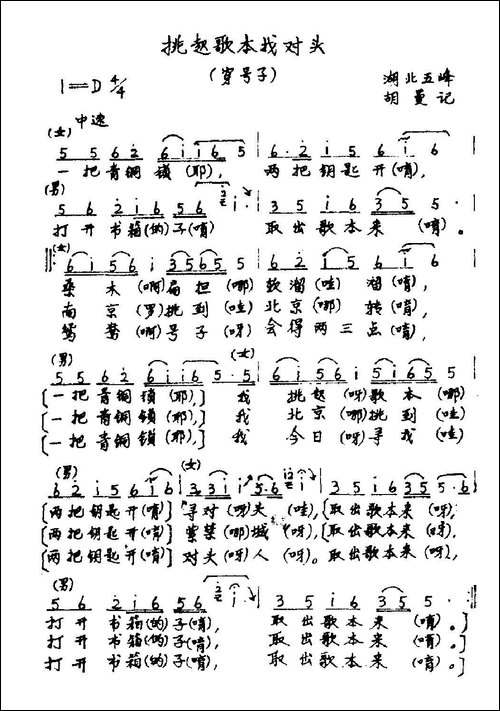 挑起歌本找对头
(穿号子)
1=D 4/4
湖北五峰
胡曼记
中速
(女)
5 5 6 2 6 i i 6 5 6· 2 i 5 6 i 6
一把青铜锁(耶), 两把钥匙开(唷),
(男)
5 6 2 i 6 5 6 i· 3 5 i 6 3 5 5·
打开书箱(的)子(唷) 取出歌本来(唷)。
(女)
6 i 5 6 i 3 5 6 5 5 6 2 i 5 6 5
桑木(啊)扁担(哪)软溜(哇)溜(唷),
南京(罗)挑到(哇)北京(哪)转(唷),
鸳鸯(啊)号子(呀)会得两三点(唷),
(男) (女)
5 5 6 2 6 i i 6 5·5 6 i 5 6 i 5 i 6 5 5
[一把青铜锁(耶),]我 挑起(呀)歌本(哪)
[一把青铜锁(耶),]我 北京(哪)挑到(哇)
[一把青铜锁(耶),]我 今日(呀)寻找(哇)
(男) (女)
6 2 i 5 6 i 6 3 3 i i 5 6 i 3 3 i 6 3 5 5·6
[两把钥匙开(唷)]寻对(呀)头(哇),[取出歌本来(呀),
[两把钥匙开(唷)]紫禁(哪)城(呀),[取出歌本来(呀),
[两把钥匙开(唷)]对头(呀)人(呀)。[取出歌本来(呀),
(男)
5 6 2 i 6 5 6 i· 3 5 i 6 3 5 5·
打开书箱(的)子(唷), 取出歌本来(唷)。]
打开书箱(的)子(唷), 取出歌本来(唷)。]
打开书箱(的)子(唷), 取出歌本来(唷)。]